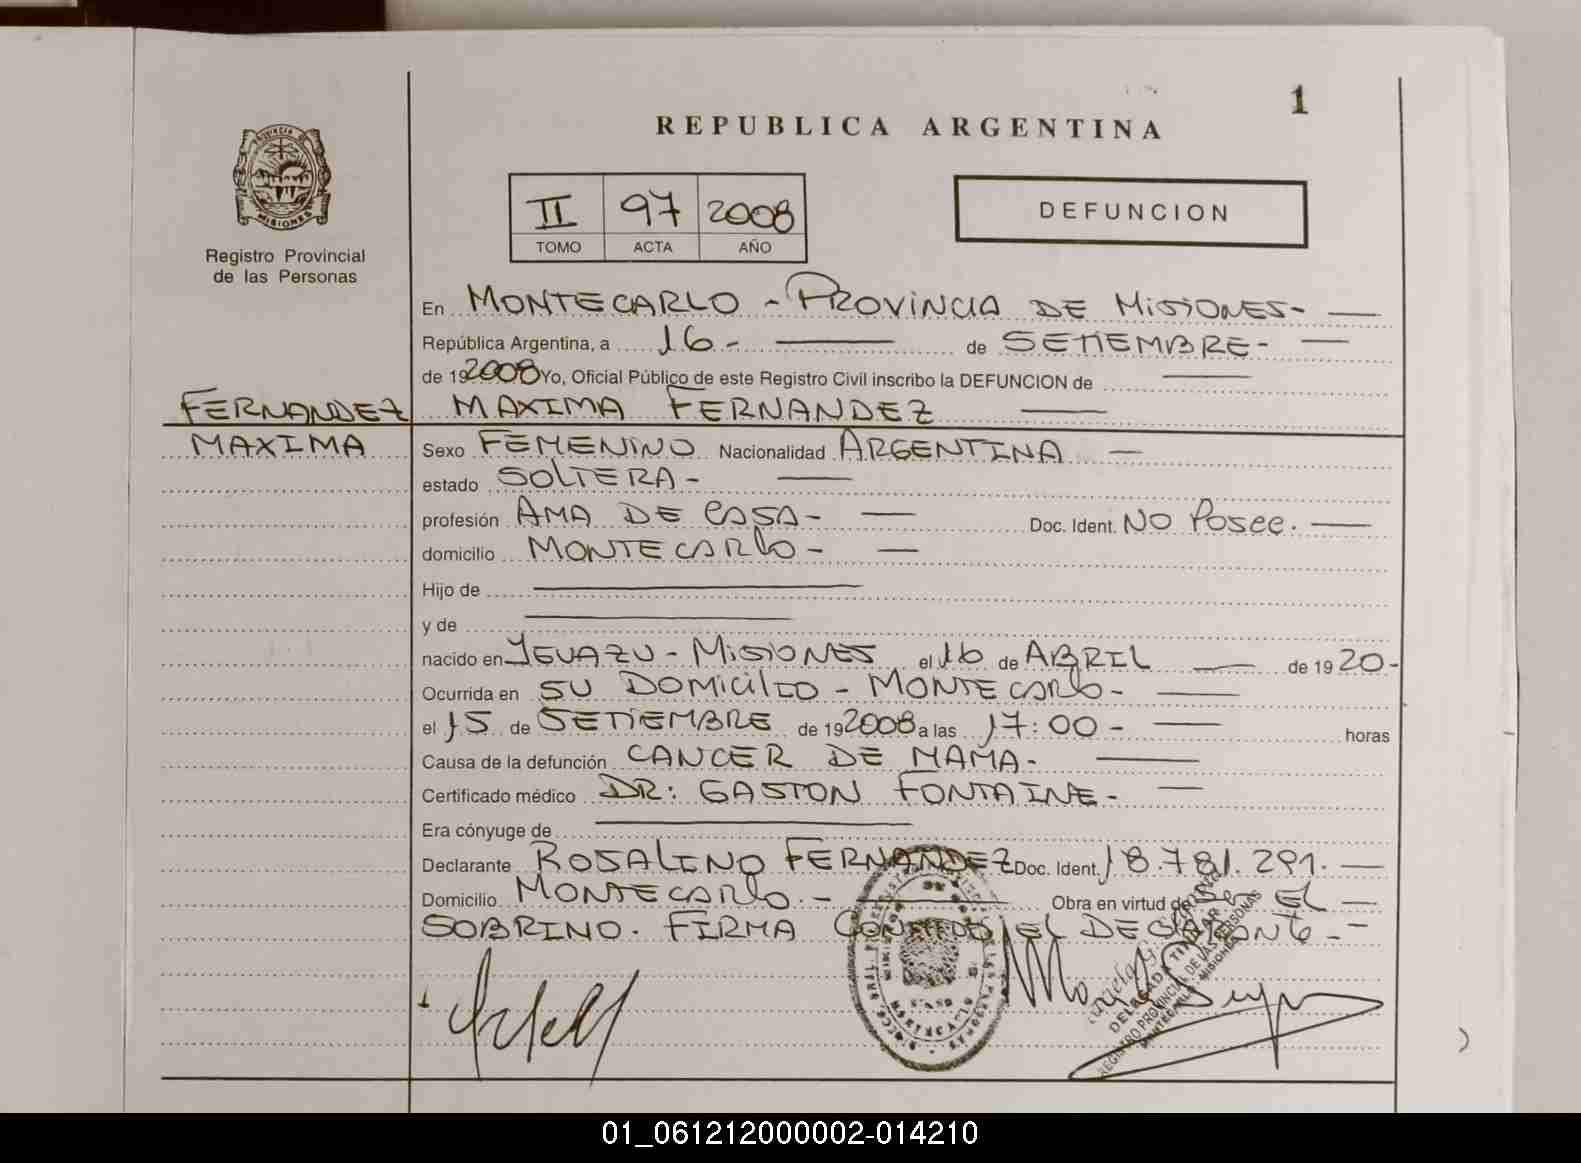 1
REPUBLICA ARGENTINA
PROVINCIA DE
MISIONES
Registro Provincial
de las Personas
II 97 2008
TOMO ACTA AÑO
DEFUNCION
En MONTECARLO - PROVINCIA DE MISIONES-
República Argentina, a 16- de SETIEMBRE-
de 192008 Yo, Oficial Público de este Registro Civil inscribo la DEFUNCION de
FERNANDEZ MAXIMA FERNANDEZ
MAXIMA Sexo FEMENINO Nacionalidad ARGENTINA
estado SOLTERA-
profesión AMA DE CASA- Doc. Ident. NO Posee.
domicilio MONTECARLO-
Hijo de
y de
nacido en IGUAZU - MISIONES el 16 de ABRIL de 1920-
Ocurrida en SU DOMICILIO - MONTECARLO-
el 15 de SETIEMBRE de 192008 a las 17:00- horas
Causa de la defunción CANCER DE MAMA-
Certificado médico DR: GASTON FONTAINE-
Era cónyuge de
Declarante ROSALINO FERNANDEZ Doc. Ident. 18.781.291.
Domicilio MONTECARLO.- Obra en virtud de SER EL
SOBRINO. FIRMA CONMIGO EL DECLARANTE.-
DELEGADA TITULAR
REGISTRO PROVINCIAL DE LAS PERSONAS
MONTECARLO - MISIONES
01_061212000002-014210